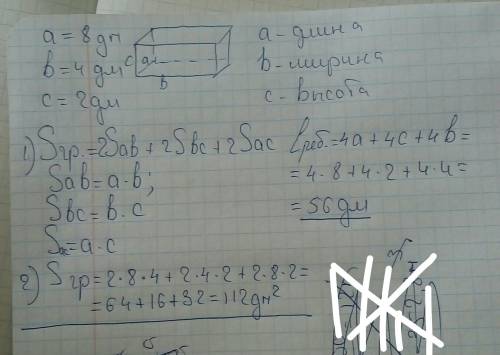 a = 8 дм
b = 4 дм
c = 2 дм
c
a
b
a - длина
b - ширина
c - высота
1) Sгр. = 2Sab + 2Sbc + 2Sac
Sab = a·b;
Sbc = b·c
Sac = a·c
lреб. = 4a + 4c + 4b =
= 4·8 + 4·2 + 4·4 =
= 56 дм
2) Sгр = 2·8·4 + 2·4·2 + 2·8·2 =
= 64 + 16 + 32 = 112 дм²